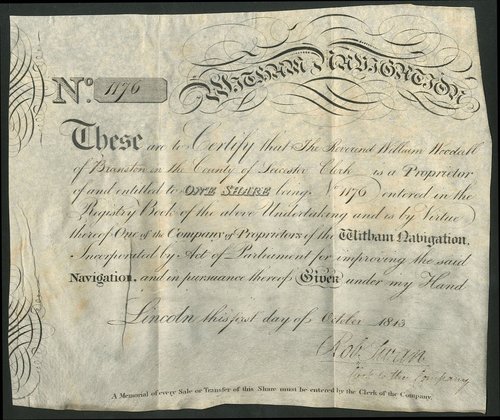 WITHAM NAVIGATION
No. 1176
These are to Certify that The Reverend William Woodall
of Branston in the County of Leicester Clerk is a Proprietor
of and entitled to ONE SHARE being No 1176 entered in the
Registry Book of the above Undertaking and is by Virtue
thereof One of the Company of Proprietors of the Witham Navigation,
Incorporated by Act of Parliament for improving the said
Navigation, and in pursuance thereof Given under my Hand
Lincoln this first day of October 1813
Rob. Swan
Clerk to the Company
A Memorial of every Sale or Transfer of this Share must be entered by the Clerk of the Company.